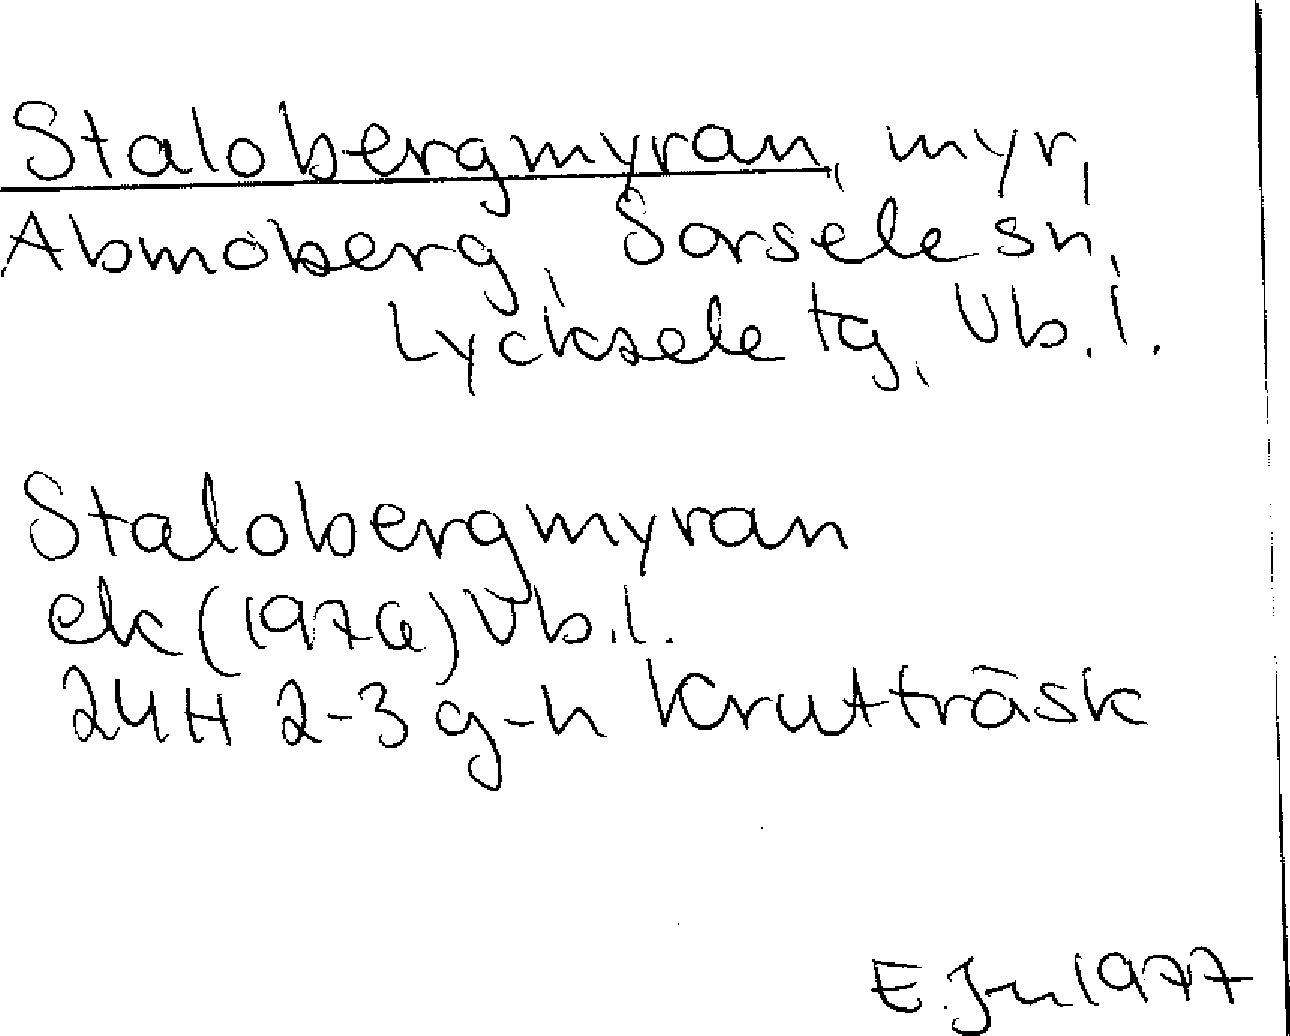 Stalobergmyran, myr,
Abmoberg, Sorsele sn,
Lycksele tg, Vb.l.
Stalobergmyran
ek (1976) Vb.l.
24H 2-3 g-h Krutträsk
E. Jn 1977